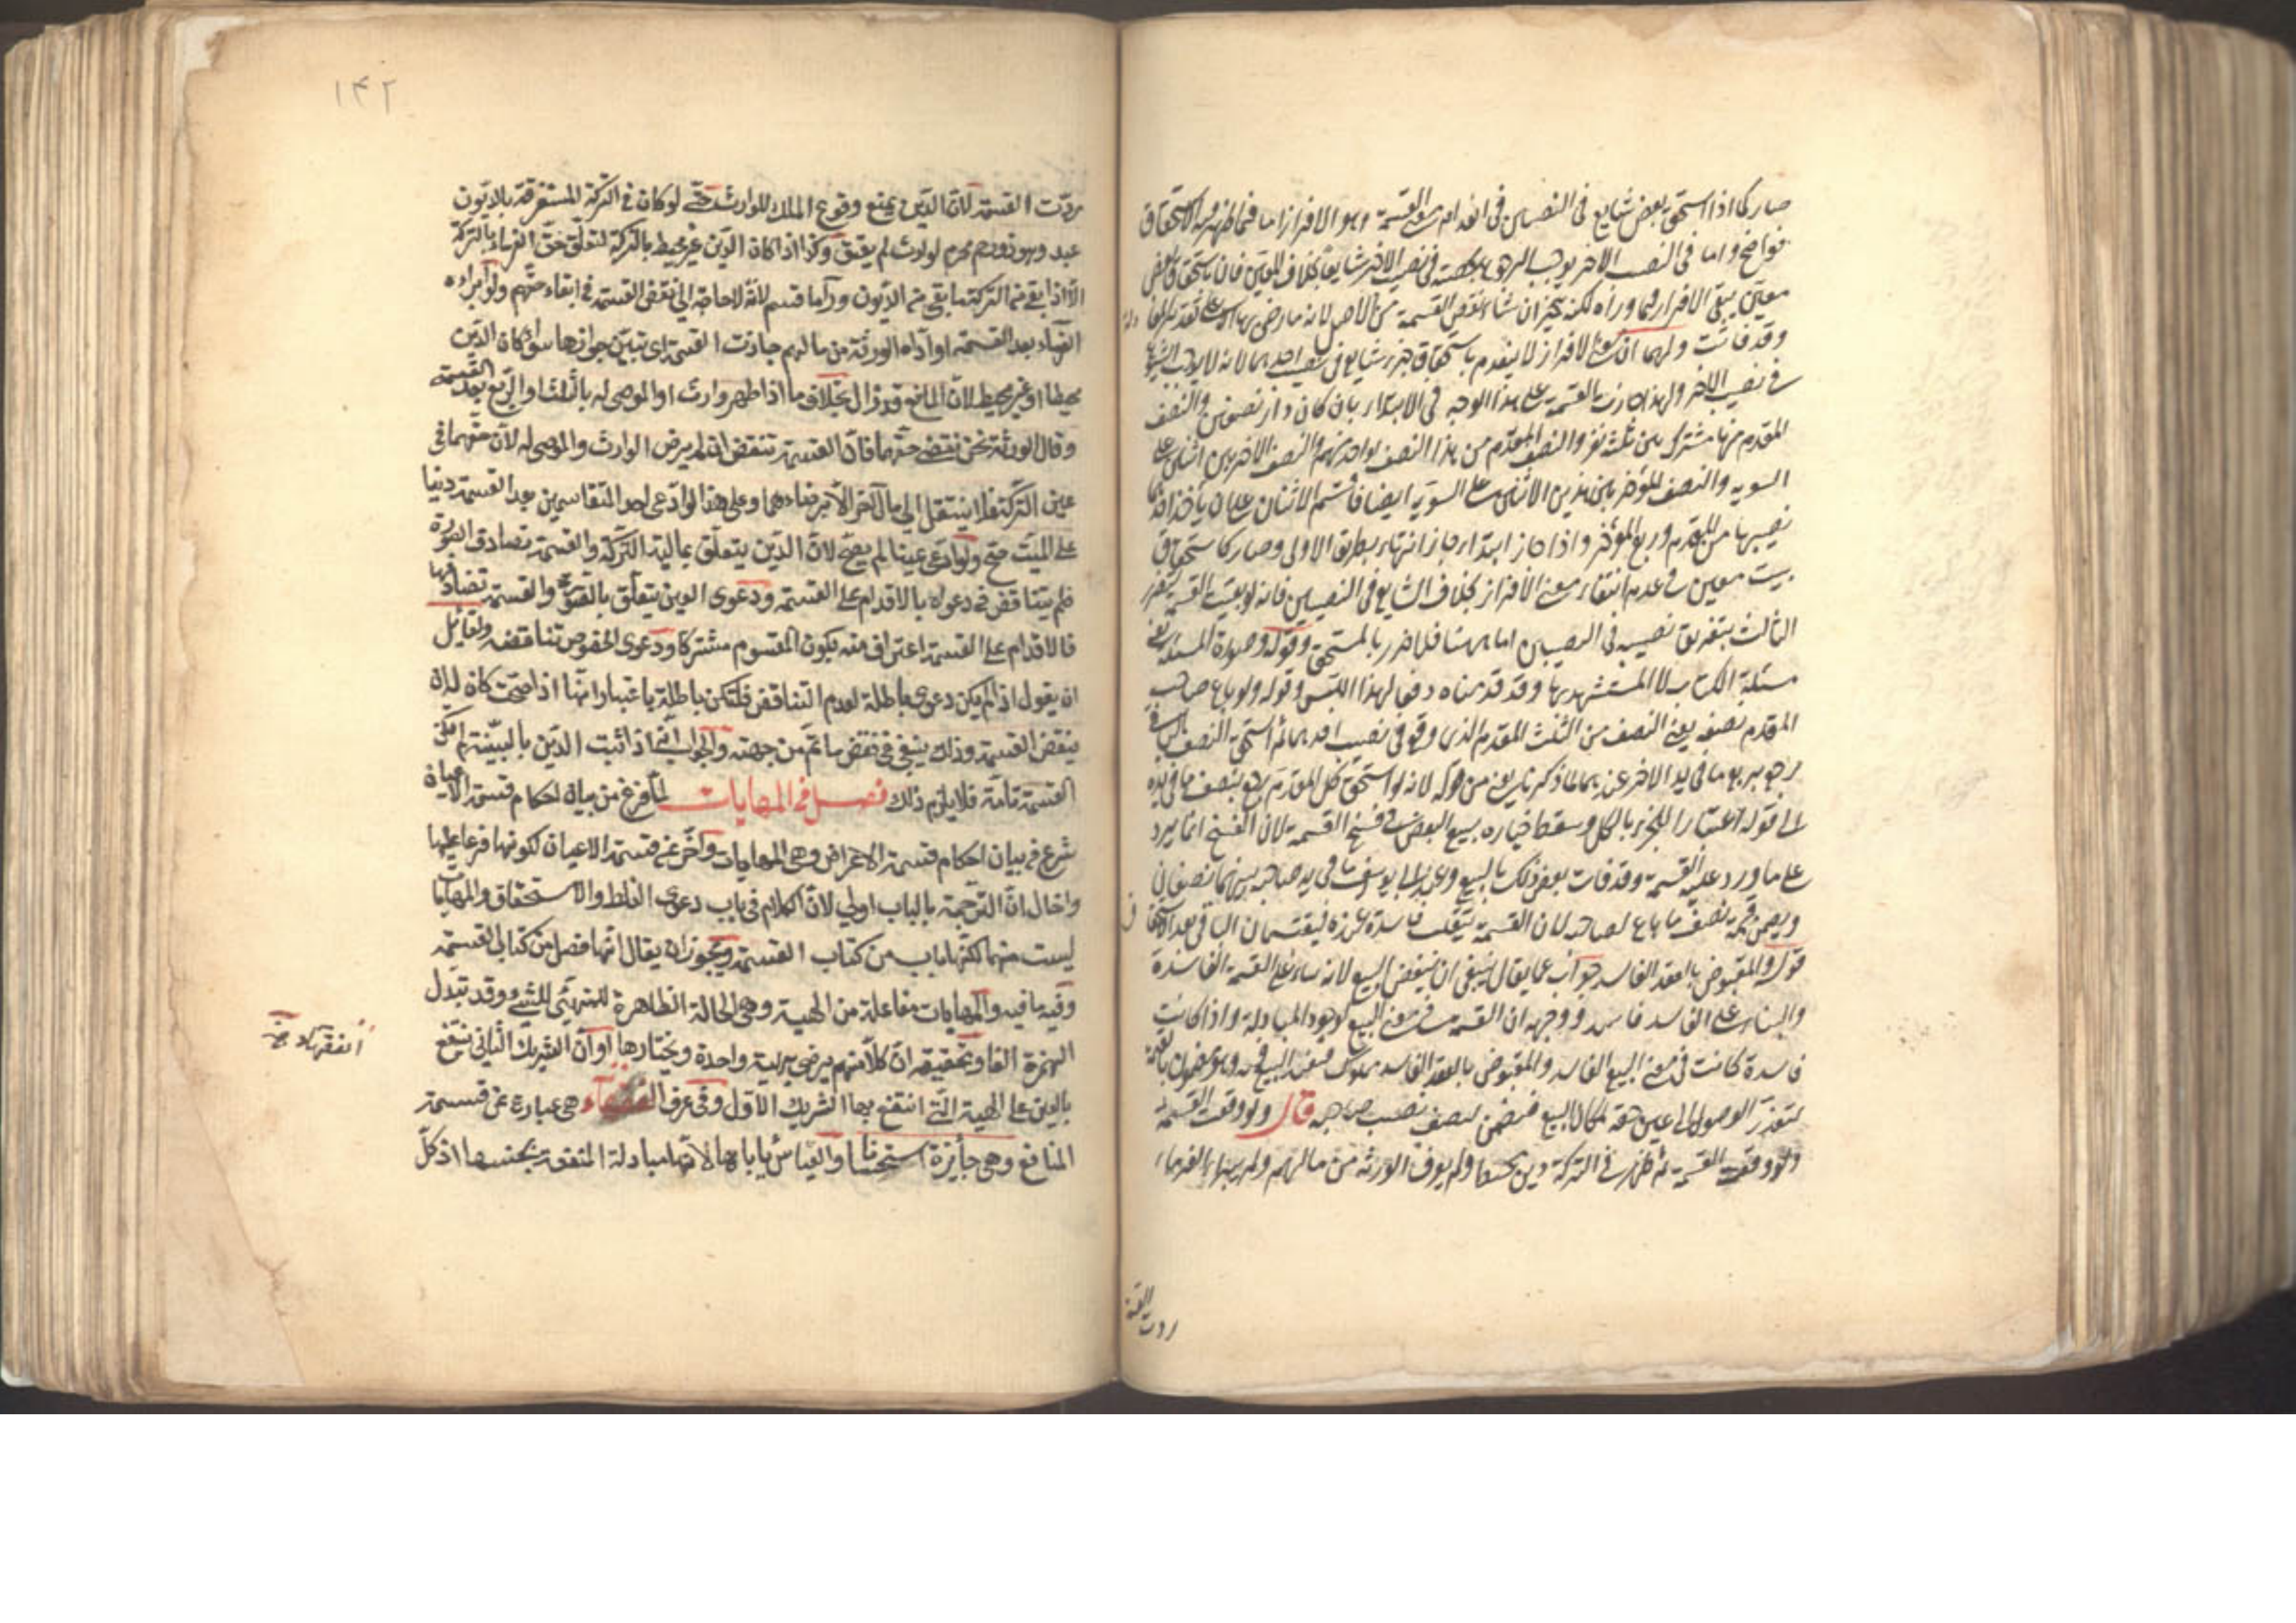 صار كما اذا استحق بعض شايع فى النصيبين فى انعدام معنى القسمة وهو الافراز اما فيما ظهر فيه الاستحقاق
فواضح واما فى النصيب الاخر يوجب الرجوع بحصته فى نصيب الاخر شايعا بخلاف المعين فان باستحقاق بعض
معين يبقى الافراز فيما وراه لكنه يتخير ان شاء نقض القسمة من الاصل لانه ما رضى بها الا على تقدير
وقد فاتت ولهما ان معنى الافراز لا ينعدم باستحقاق جزء شايع فى نصيب احدهما لانه لا يوجب الشيوع
فى نصيب الاخر ولهذا جازت القسمة على هذا الوجه فى الابتداء بان كان دار نصفين والنصف
المقدم منها مشترك بين ثلثة نفر والنصف المقدم من هذا النصف لواحد منهم والنصف الاخر بين اثنين على
السويه والنصف المؤخر بين هذين الاثنين على السوية ايضا فاقتسم الاثنان على ان ياخذ احدهما
نصيبهما من المقدم وربع المؤخر واذا جاز ابتداء جاز انتهاء بطريق الاولى وصار كاستحقاق
بيت معين فى عدم انتفاء معنى الافراز بخلاف الشايع فى النصيبين فانه لو بقيت القسمة يتضرر
الثالث بتفريق نصيبه فى النصيبين اما ههنا فلا ضرر بالمستحق وقوله وصورة المسئلة يعنى
مسئلة الكتاب لا المستشهد بها وقد قدمناه دفعا لهذا اللبس وقوله ولو باع صاحب
المقدم نصفه يعنى النصف من الثلث المقدم الذى وقع فى نصيب احدهما ثم استحق النصف الباقى
رجع بربع ما فى يد الاخر عندهما لما ذكرنا يعنى من قوله لانه لو استحق كل المقدم رجع بنصف ما فى يده
الى قوله اعتبارا للجزء بالكل وسقط خياره ببيع البعض فى فسخ القسمة لان الفسخ انما يرد
على ما ورد عليه القسمة وقد فات بعض ذلك بالبيع وعند ابى يوسف ما فى يد صاحبه بينهما نصفان
ويضمن قيمة نصف ما باع لصاحبه لان القسمة تنقلب فاسدة عنده فيقتسمان الباقى بعد الاستحقاق
قوله والمقبوض بالعقد الفاسد جواب عما يقال ينبغى ان ينقض البيع لانه بناء على القسمة الفاسدة
والبناء على الفاسد فاسد ووجهه ان القسمة فى معنى البيع لوجود المبادلة واذا كانت
فاسدة كانت فى معنى البيع الفاسد والمقبوض بالعقد الفاسد مملوك فينفذ البيع فيه وهو مضمون بالقيمة
لتعذر الوصول الى عين حقه لمكان البيع فيضمن نصف نصيب صاحبه قال ولو وقعت القسمة
ولو وقعت القسمة ثم ظهر فى التركة دين محيط ولم يوف الورثة من مالهم ولم يبراء الغرماء
ردت القسمة
١٤٢
ردّت القسمة لانّ الدّين يمنع وقوع الملك للوارث حتّى لو كان فى التركة المستغرقة بالديون
عبد وهو ذو رحم محرم لوارث لم يعتق وكذا اذا كان الدّين غير محيط بالتركة لتعلّق حقّ الغرماء بالتركة
الّا اذا بقى من التركة ما يفى من الديون وراء ما قسم لانّه لا حاجة الى نقض القسمة فى ايفاء حقّهم ولو ابراءه
الغرماء بعد القسمة او ادّاه الورثة من مالهم جازت القسمة اى تبيّن جوازها سواء كان الدّين
محيطا او غير محيط لانّ المانع قد زال بخلاف ما اذا ظهر وارث او الموصى له بالثلث او الربع بعد القسمة
وقال الورثة نحن نقضى حقّهما فانّ القسمة تنتقض ان لم يرض الوارث والموصى له لانّ حقّهما فى
عين التركة فلا ينتقل الى مال آخر الّا برضاءهما وعلى هذا لو ادّعى احد المتقاسمين بعد القسمة دينا
على الميّت صحّ ولو ادّعى عينا لم يصحّ لانّ الدّين يتعلّق بمالية التركة والقسمة تصادق الصورة
فلم يتناقض فى دعواه بالاقدام على القسمة ودعوى العين يتعلّق بالصورة والقسمة تصادفها
فالاقدام على القسمة اعتراف منه بكون المقسوم مشتركا ودعوى الخصوص تناقضه ولقائل
ان يقول اذ لم يكن دعوى باطلة لعدم التناقض فلتكن باطلة باعتبار انّها اذا صحّت كان له ان
ينقض القسمة وذلك ينبغى فى نقض ما تمّ من جهته والجواب انّه اذا ثبت الدّين بالبيّنة لم يكن
القسمة تامّة فلا يلزم ذلك فصل فى المهايات لمّا فرغ من بيان احكام قسمة الاعيان
شرع فى بيان احكام قسمة الاعراض وهى المهايات واخّر عن قسمة الاعيان لكونها فرعا عليها
واخال انّ الترجمة بالباب اولى لانّ الكلام فى باب دعوى الغلط والاستحقاق والمهايات
ليست منها لكنّها باب من كتاب القسمة ويجوز ان يقال انّها فصل من كتاب القسمة
وفيه ما فيه والمهايات مفاعلة من الهيئة وهى الحالة الظاهرة للمتهيّئ للشئ وقد تبدّل
الهمزة الفا وتحقيقه انّ كلّا منهم يرضى بهيئة واحدة ويختارها او انّ الشريك الثانى ينتفع
بالعين على الهيئة الّتى انتفع بها الشريك الاوّل وفى عرف الفقهاء هى عبارة عن قسمة
المنافع وهى جائزة استحسانا والقياس ياباها لانّها مبادلة المنفعة بجنسها اذ كلّ